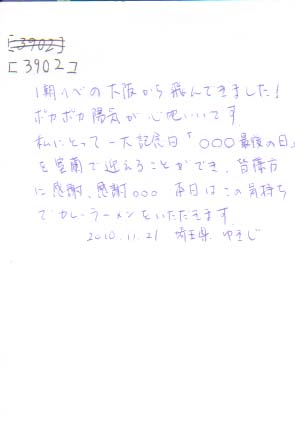 [3902]
[3902]
の大阪から飛んできました！
ポカポカ陽気が心地いいです
私にとって一大記念日「○○○最後の日」
を室蘭で迎えることができ、皆様方
に感謝、感謝○○○ 本日はこの気持ち
でカレーラーメンをいただきます
2010.11.21 埼玉県 ゆうじ